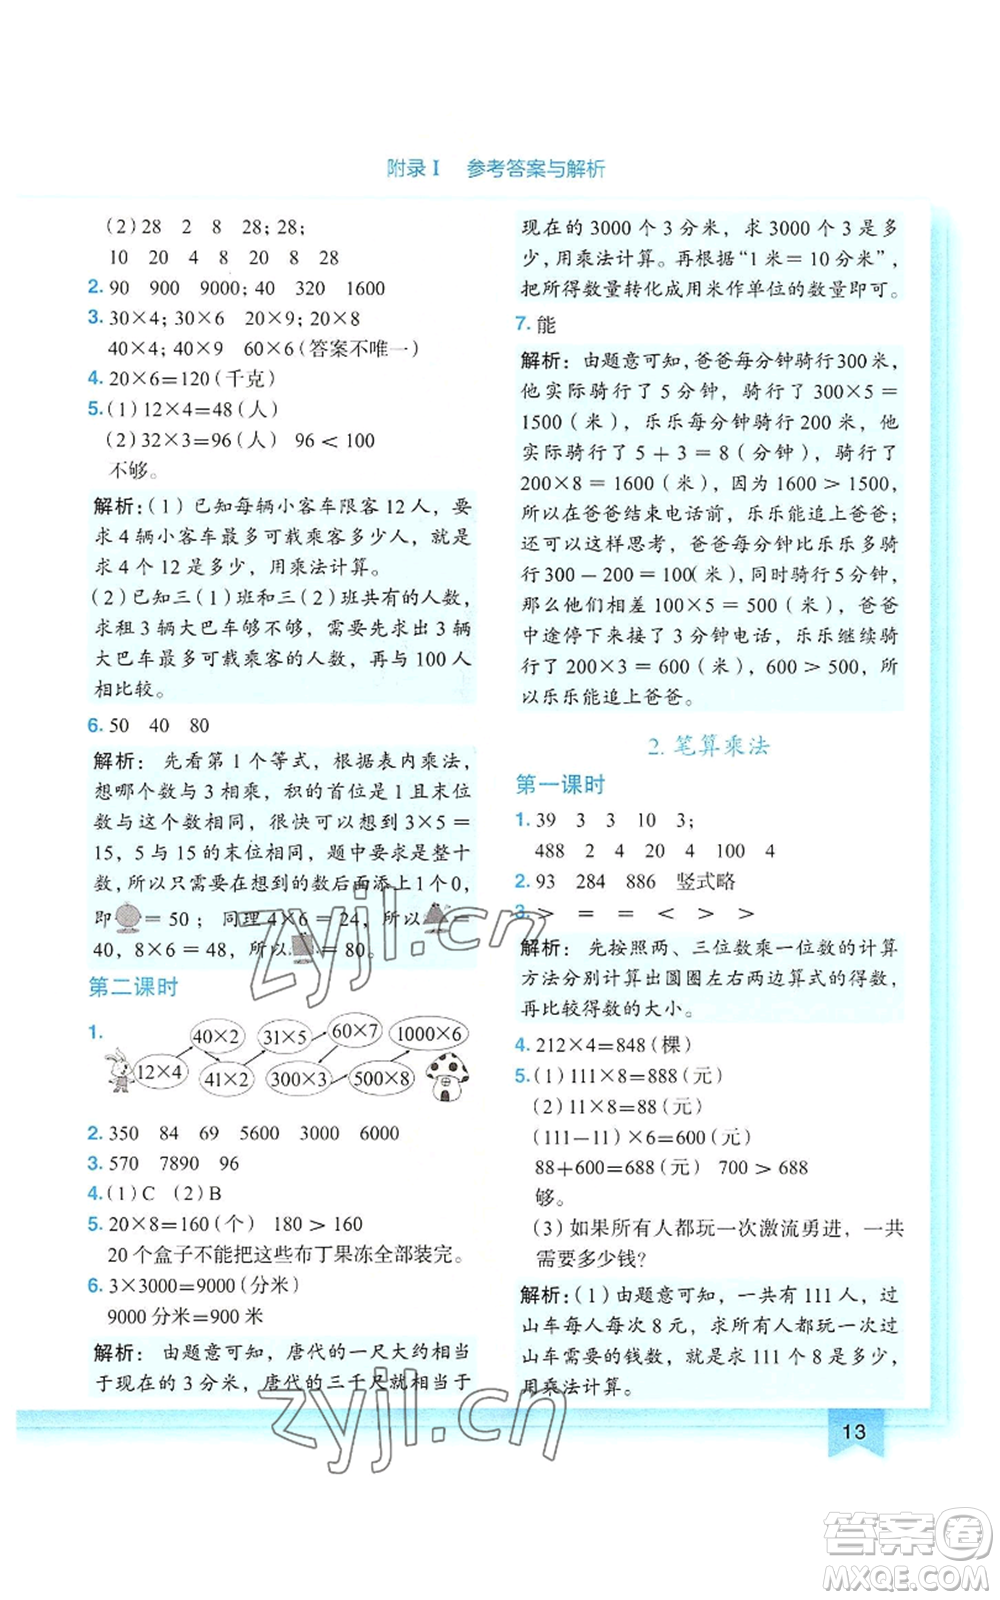 附录 Ⅰ 参考答案与解析
(2)28 2 8 28;28;
10 20 4 8 20 28 28
2. 90 900 9000;40 320 1600
3. 30×4;30×6 20×9;20×8
40×4;40×9 60×6(答案不唯一)
4. 20×6=120(千克)
5. (1)12×4=48(人)
(2)32×3=96(人) 96 < 100
不够。
解析:(1)已知每辆小客车限客 12 人,要
求 4 辆小客车最多可载乘客多少人,就是
求 4 个 12 是多少,用乘法计算。
(2)已知三(1)班和三(2)班共有的人数,
求租 3 辆大巴车够不够,需要先求出 3 辆
大巴车最多可载乘客的人数,再与 100 人
相比较。
6. 50 40 80
解析:先看第 1 个等式,根据表内乘法,
想哪个数与 3 相乘,积的首位是 1 且末位
数与这个数相同,很快可以想到 3×5 =
15,5 与 15 的末位相同,题中要求是整十
数,所以只需给想到的数后面添上 1 个 0,
即 = 50;同理 4×6 = 24,所以 =
40,8×6 = 48,所以 = 80。
第二课时
1.
40×2 31×5 60×7 1000×6
12×4 41×2 300×3 500×8
2. 350 84 69 5600 3000 6000
3. 570 7890 96
4. (1)C (2)B
5. 20×8=160(个) 180 > 160
20 个盒子不能把这些布丁果冻全部装完。
6. 3×3000=9000(分米)
9000 分米=900 米
解析:由题意可知,唐代的一尺大约相当
于现在的 3 分米,唐代的三千尺就相当于
现在的 3000 个 3 分米,求 3000 个 3 是多
少,用乘法计算。再根据“1 米= 10 分米”,
把所得数量转化成用米作单位的数量即可。
7. 能
解析:由题意可知,爸爸每分钟骑行300 米,
他实际骑行了 5 分钟,骑行了 300×5 =
1500(米),乐乐每分钟骑行 200 米,他
实际骑行了 5 + 3 = 8(分钟),骑行了
200×8 = 1600(米),因为 1600 > 1500,
所以在爸爸结束电话前,乐乐能追上爸爸;
还可以这样思考,爸爸每分钟比乐乐多骑
行300 - 200 = 100(米),同时骑行 5 分钟,
那么他们相差 100×5 = 500(米),爸爸
中途停下来接了 3 分钟电话,乐乐继续骑
行了 200×3 = 600(米),600 > 500,所
以乐乐能追上爸爸。
2. 笔算乘法
第一课时
1. 39 3 3 10 3;
488 2 4 20 4 100 4
2. 93 284 886 竖式略
3. > = = < > >
解析:先按照两、三位数乘一位数的计算
方法分别计算出圆圈左右两边算式的得数,
再比较得数的大小。
4. 212×4=848(棵)
5. (1)111×8=888(元)
(2)11×8=88(元)
(111-11)×6=600(元)
88+600=688(元) 700 > 688
够。
(3)如果所有人都玩一次激流勇进,一共
需要多少钱?
解析:(1)由题意可知,一共有 111 人,过
山车每人每次 8 元,求所有人都玩一次过
山车需要的钱数,就是求 111 个 8 是多少,
用乘法计算。
13
zyjl.cn
zyjl.cn
答案卷
MXQE.COM